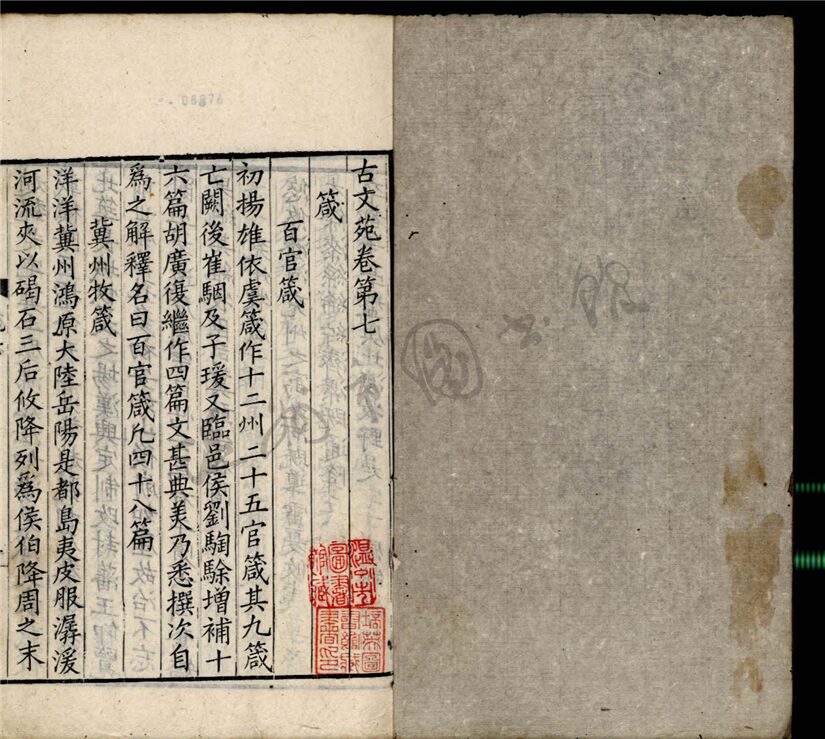 古文苑卷第七
箴
百官箴
初揚雄依虞箴作十二州二十五官箴其九箴
亡闕後崔駰及子瑗又臨邑侯劉騊駼增補十
六篇胡廣復繼作四篇文甚典美乃悉撰次自
爲之解釋名曰百官箴凢四十八篇
冀州牧箴
洋洋冀州鴻原大陸岳陽是都島夷皮服潺湲
河流夾以碣石三后攸降列爲侯伯降周之末
08276